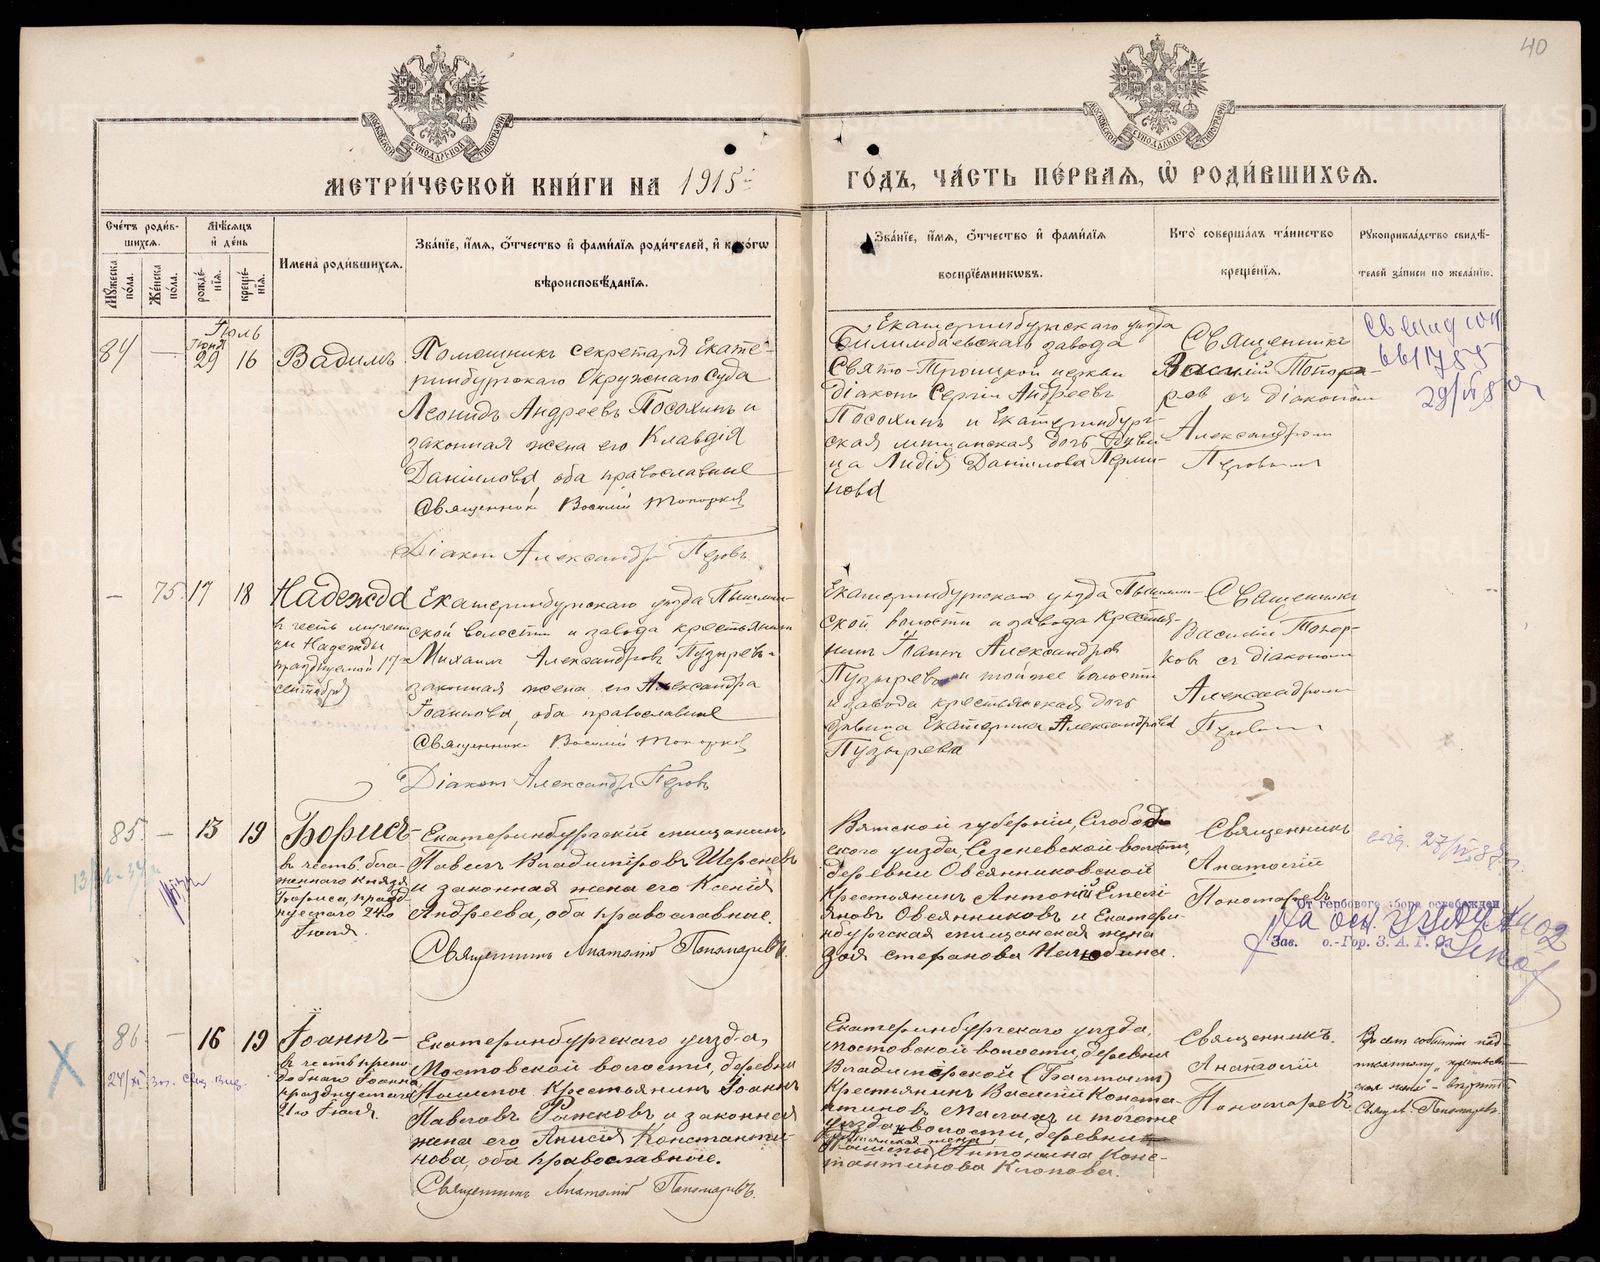 40
МЕТРИ́ЧЕСКОЙ КНИ́ГИ НА 1915 ГО́ДЪ, ЧА́СТЬ ПЕ́РВАЯ, Ѽ РОДИ́ВШИХСЯ.
Сче́тъ роди́в-
шихся.
Му́жеска по́ла.
Же́нска по́ла.
Мѣ́сяцъ и҆ де́нь
рожде́нїя.
креще́нїя.
И҆мена̀ роди́вшихся.
Зва́нїе, и҆́мя, ѻ҆́тчество и҆ фами́лїя роди́телей, и҆ како́гѡ
вѣроисповѣ́данїя.
Зва́нїе, и҆́мя, ѻ҆́тчество и҆ фами́лїя
воспрїе́мникѡвъ.
Кто̀ соверша́лъ та́инство
креще́нїя.
Рꙋкоприкла́дство свидѣ́-
телей за́писи по жела́нїю.
84
—
Іюль
Іюня
29
16
Вадимъ
Помощникъ секретаря Екате-
ринбургскаго Окружнаго Суда
Леонидъ Андреевъ Посохинъ и
законная жена его Клавдія
Даніилова, оба православные
Священникъ Василій Топорков
Діаконъ Александръ Перовъ
Екатеринбургскаго уѣзда
Билимбаевскаго завода
Свято-Троицкой церкви
діаконъ Сергій Андреевъ
Посохинъ и Екатеринбург-
ская мѣщанская дочь дѣви-
ца Лидія Даніилова Перми-
нова
Священникъ
Василій Топор-
ков съ діакономъ
Александромъ
—
75
17
18
Надежда
въ честь мучени
цы Надежды
празднуемой 17го
сентября
Екатеринбургскаго уѣзда Пышмин-
ской волости и завода крестьянинъ
Михаилъ Александровъ Пузыревъ и
законная жена его Александра
Іоаннова, оба православные
Священникъ Василій Топорков
Діаконъ Александръ Перовъ
Екатеринбургскаго уѣзда Пышмин-
ской волости и завода крестья-
нинъ Іоаннъ Александровъ
Пузыревъ и той же волости
и завода крестьянская дочь
дѣвица Екатерина Александрова
Пузырева
Священникъ
Василій Топор-
ковъ съ діакономъ
Александромъ
85
—
13
19
Борисъ
въ честь благо-
вѣрнаго князя
Бориса, празд-
нуемаго 24го
Іюля.
Екатеринбургскій мѣщанинъ
Павелъ Владиміровъ Шерстневъ
и законная жена его Ксенія
Андреева, оба православные.
Священникъ Анатолій Пономаревъ.
Вятской губерніи, Слобод-
ского уѣзда, Сезеневской волости,
деревни Овсянниковской
крестьянинъ Антоній Емелі-
яновъ Овсянниковъ и Екатери-
нбургская мѣщанская жена
Зоя Стефанова Нелюбина.
Священникъ
Анатолій
Пономаревъ
От гербового сбора освобожден
Зав. о.-Гор. З. А. Г. С.
86
—
16
19
Іоаннъ
въ честь препо-
добнаго Іоанна
празднуемаго
21го Іюля.
Екатеринбургскаго уѣзда,
Мостовской волости, деревни
крестьянинъ Іоаннъ
Павловъ Рожковъ и законная
жена его Анисія Константи-
нова, оба православные.
Священникъ Анатолій Пономаревъ.
Екатеринбургскаго уѣзда,
Мостовской волости, деревни
Владимірской (Балтымъ)
крестьянинъ Василій Конста-
нтиновъ Малыхъ и того же
уѣзда и волости, деревни
крестьянская жена
Антонина Конс-
тантинова Клопова.
Священникъ
Анатолій
Пономаревъ
Свящ. А. Пономаревъ.